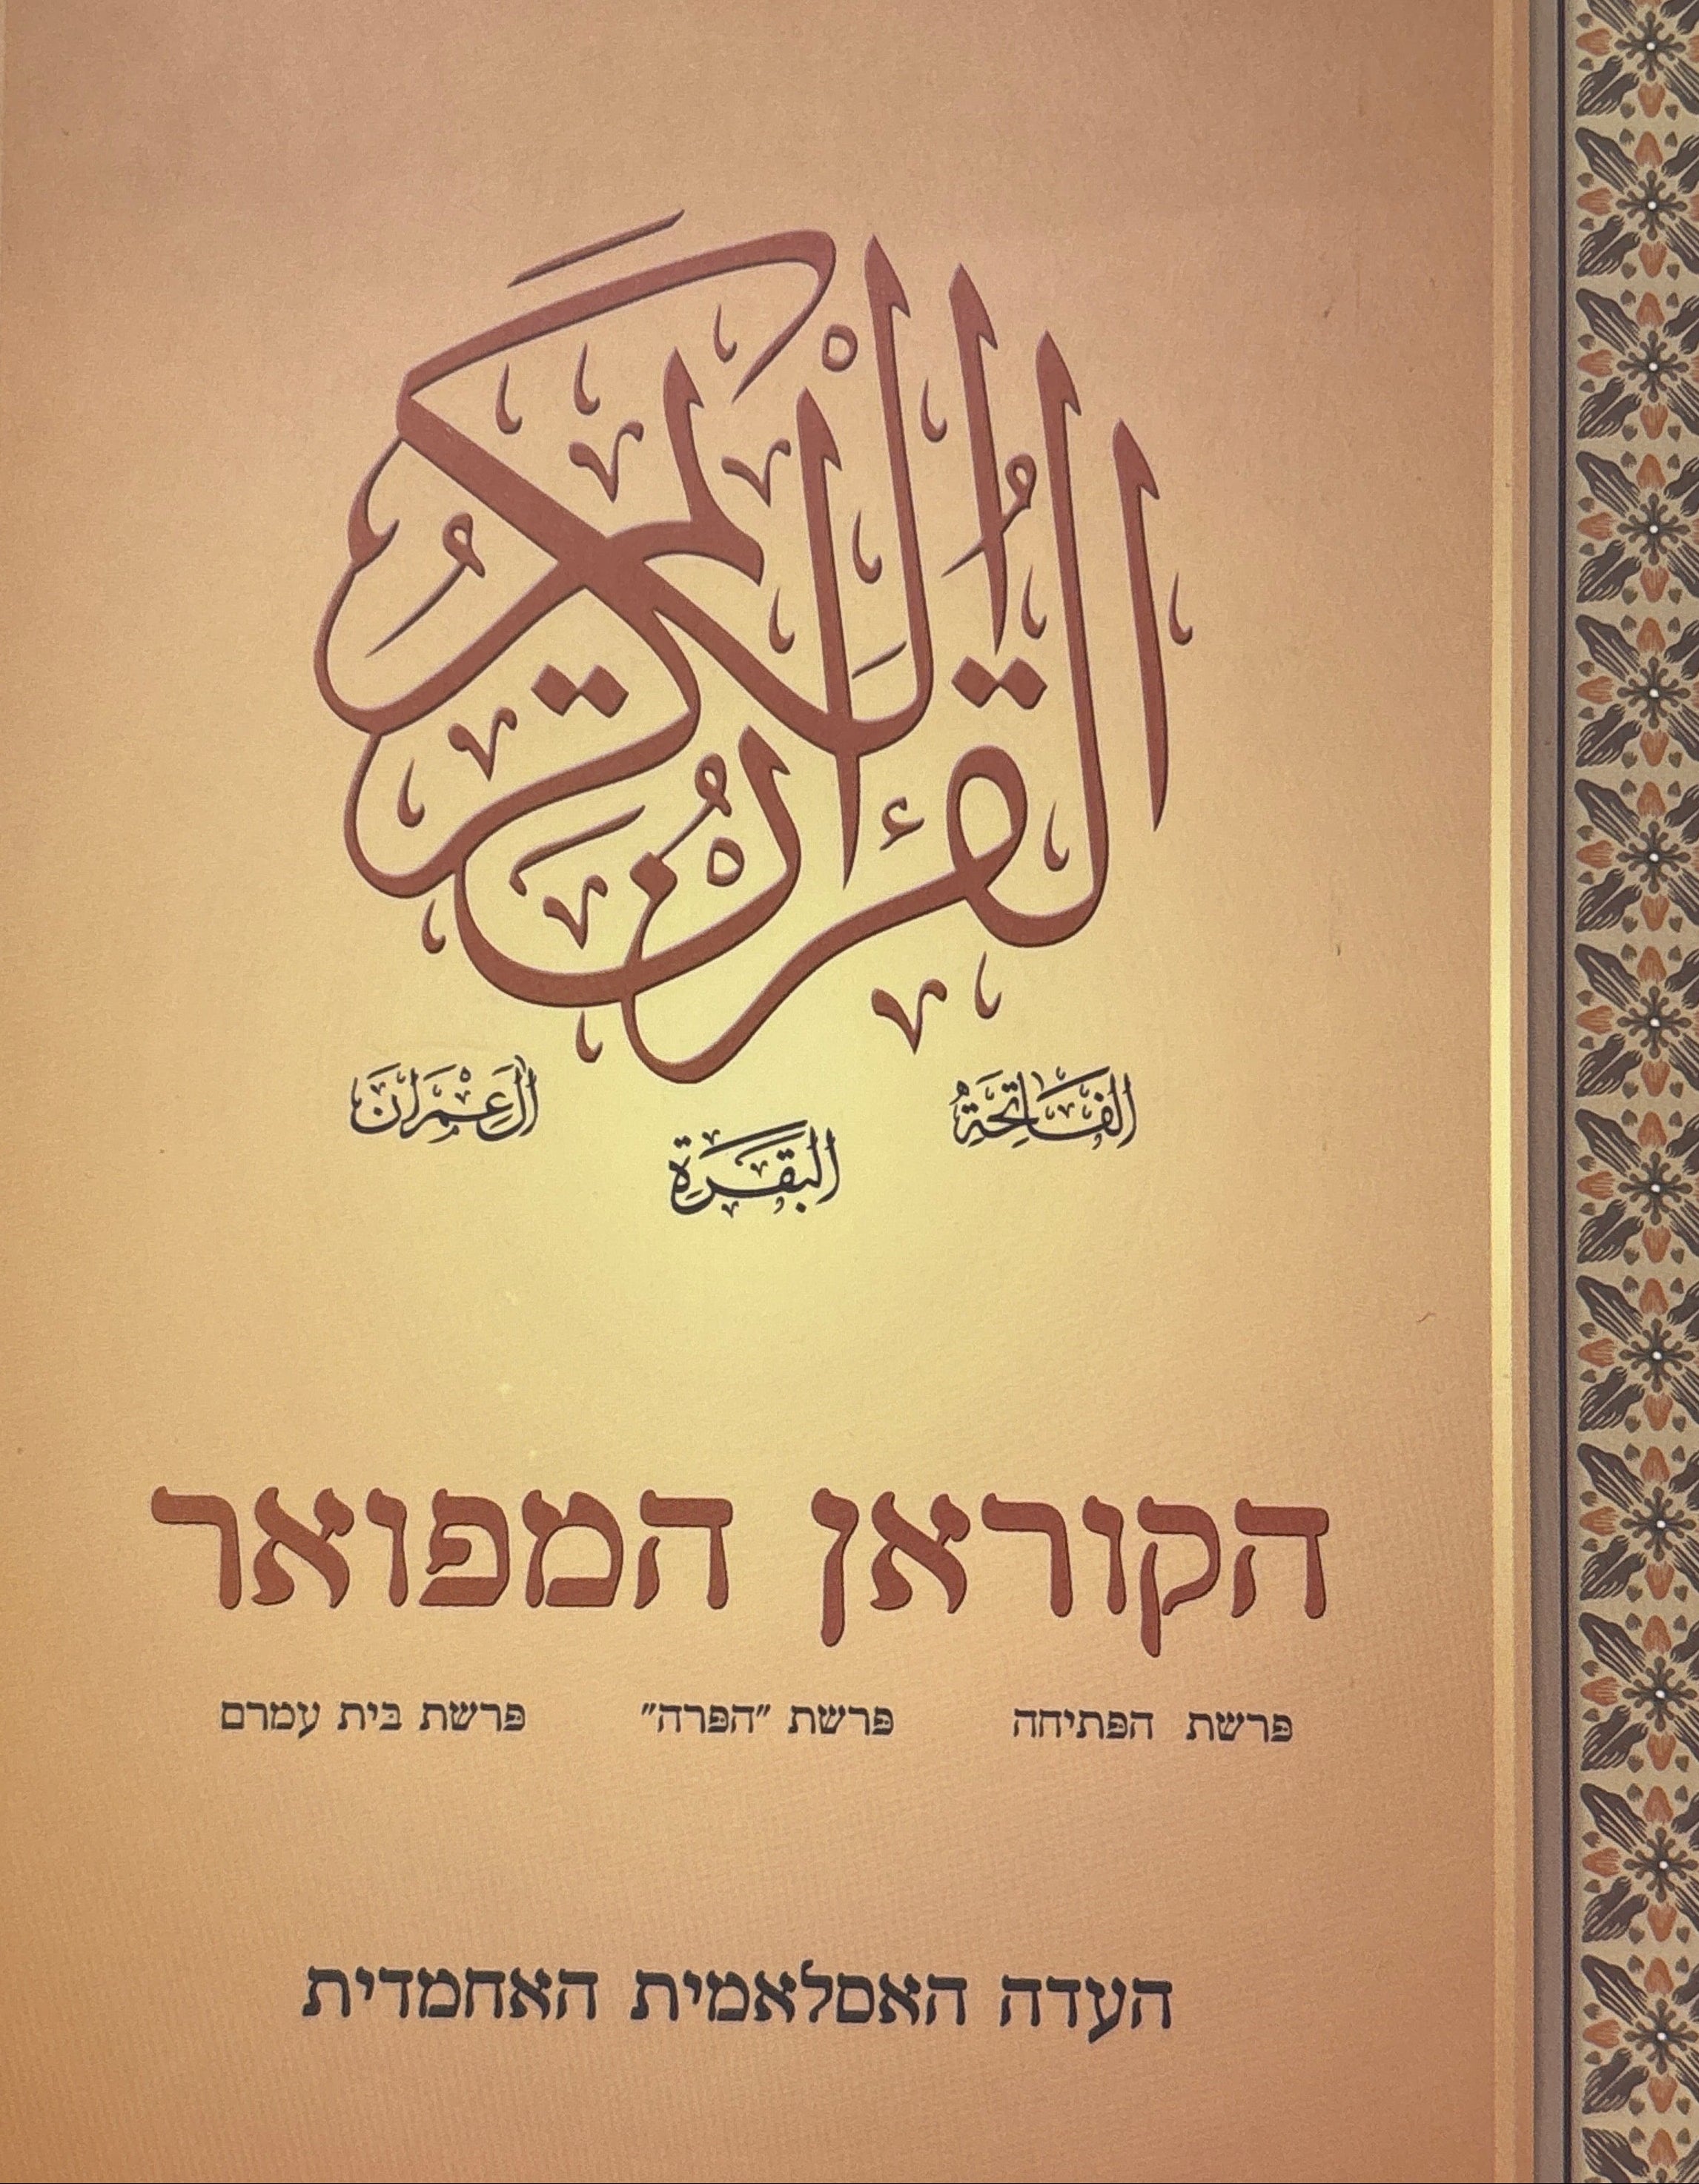 القُرْآنُ الكَرِيمُ
الفَاتِحَةُ
البَقَرَة
آل عِمْرَان
הקוראן המפואר
פרשת הפתיחה   פרשת "הפרה"   פרשת בית עמרם
העדה האסלאמית האחמדית